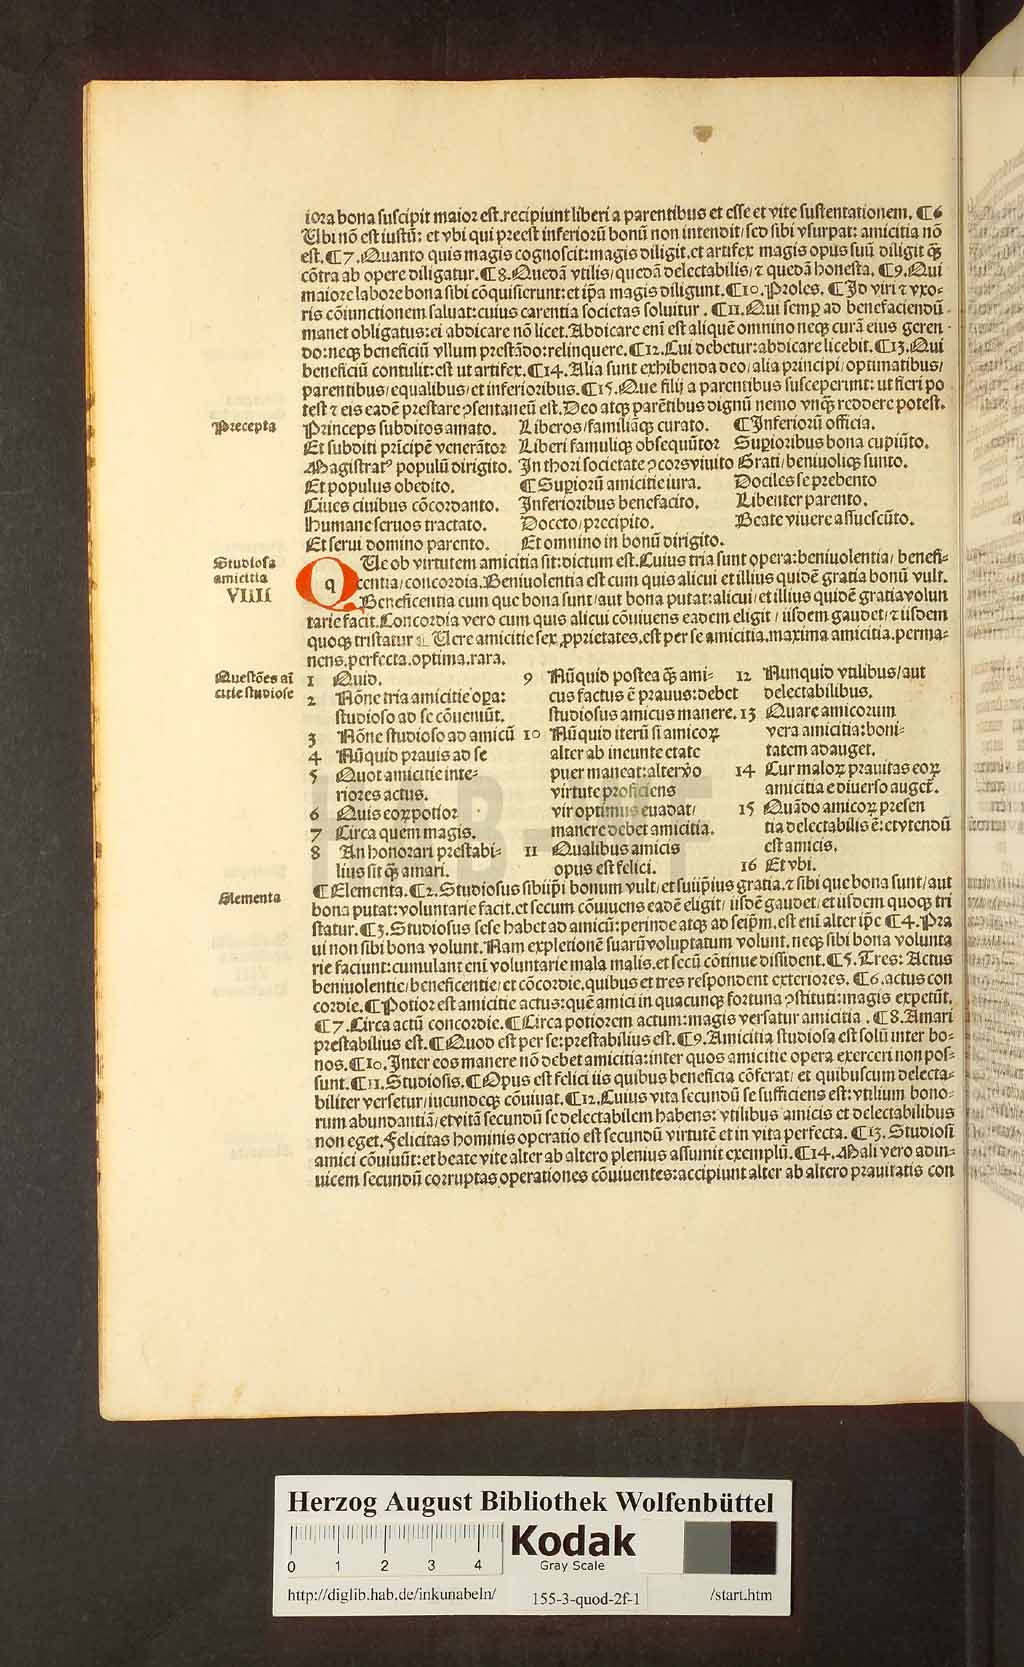 iora bona suscipit maior est.recipiunt liberi a parentibus et esse et vite sustentationem. ¶6
Ubi nō est iustū: et vbi qui preest inferiorū bonū non intendit/sed sibi vsurpat: amicitia nō
est.¶7.Quanto quis magis cognoscit:magis diligit.et artifex magis opus suū diligit q̄ȝ
cōtra ab opere diligatur.¶8.Quedā vtilis/quedā delectabilis/⁊ quedā honesta. ¶9.Qui
maiore labore bona sibi cōquisierunt:et ip̄a magis diligunt.¶10.Proles. ¶Id viri ⁊ vxo⸗
ris cōiunctionem saluat:cuius carentia societas soluitur. ¶11.Qui semꝑ ad benefaciendū
manet obligatus:ei abdicare nō licet.Abdicare enī est aliquē omnino neqȝ curā eius geren⸗
do:neqȝ beneficiū vllum prestādo:relinquere.¶12.Cui debetur:abdicare licebit.¶13.Qui
beneficiū contulit:est ut artifex.¶14.Alia sunt exhibenda deo/alia principi/optimatibus/
parentibus/equalibus/et inferioribus.¶15.Que filij a parentibus susceperunt: ut fieri po
test ⁊ eis eadē prestare ꝯsentaneū est.Deo atqȝ parētibus dignū nemo vnqȝ reddere potest.
Precepta
Princeps subditos amato.
Et subditi prīcipē venerātor
Magistratꝰ populū dirigito.
Et populus obedito.
Ciues ciuibus cōcordanto.
Humane seruos tractato.
Et serui domino parento.
Liberos/familiāqȝ curato.
Liberi famuliqȝ obsequūtor
In thori societate ꝯcors viuito
¶Suꝑiorū amicitie iura.
Inferioribus benefacito.
Doceto/precipito.
Et omnino in bonū dirigito.
¶Inferiorū officia.
Suꝑioribus bona cupiūto.
Grati/beniuoliqȝ sunto.
Dociles se prebento
Libenter parento.
Beate viuere assuescūto.
Studiosa
amicitia
VIIII
QUe ob virtutem amicitia sit:dictum est.Cuius tria sunt opera:beniuolentia/benefi⸗
centia/concordia.Beniuolentia est cum quis alicui et illius quidē gratia bonū vult.
Beneficentia cum que bona sunt/aut bona putat:alicui/et illius quidē gratia volun
tarie facit.Concordia vero cum quis alicui cōuiuens eadem eligit/iisdem gaudet/⁊ iisdem
quoqȝ tristatur Vere amicitie sex ꝓprietates.est per se amicitia.maxima amicitia.perma⸗
nens.perfecta.optima.rara.
Questōes aī
citie studiose
1 Quid.
2 Nōne tria amicitie oꝑa:
studioso ad se cōueniūt.
3 Nōne studioso ad amicū
4 Nūquid prauis ad se
5 Quot amicitie inte⸗
riores actus.
6 Quis eoꝝ potior
7 Circa quem magis.
8 An honorari prestabi⸗
lius sit q̄ȝ amari.
9 Nūquid postea q̄ȝ ami⸗
cus factus ē prauus:debet
studiosus amicus manere.
10 Nūquid iterū si amicoꝝ
alter ab ineunte etate
puer maneat:alter vo
virtute proficiens
vir optimus euadat/
manere debet amicitia.
11 Qualibus amicis
opus est felici.
12 Nunquid vtilibus/aut
delectabilibus.
13 Quare amicorum
vera amicitia:boni⸗
tatem adauget.
14 Cur maloꝝ prauitas eoꝝ
amicitia e diuerso auget̄.
15 Quādo amicoꝝ presen
tia delectabilis ē:et vtendū
est amicis.
16 Et vbi.
Elementa
¶Elementa.¶2.Studiosus sibiip̄i bonum vult/et suiip̄ius gratia.⁊ sibi que bona sunt/aut
bona putat:voluntarie facit.et secum cōuiuens eadē eligit/iisdē gaudet/et iisdem quoqȝ tri
statur.¶3.Studiosus sese habet ad amicū:perinde atqȝ ad seip̄m.est enī alter ip̄e ¶4.Pra
ui non sibi bona volunt.Nam expletionē suarū voluptatum volunt.neqȝ sibi bona volunta
rie faciunt:cumulant enī voluntarie mala malis.et secū cōtinue dissident.¶5.Tres: Actus
beniuolentie/beneficentie/et cōcordie.quibus et tres respondent exteriores. ¶6.actus con
cordie.¶Potior est amicitie actus:quē amici in quacunqȝ fortuna ꝯstituti:magis expetūt.
¶7.Circa actū concordie.¶Circa potiorem actum:magis versatur amicitia. ¶8.Amari
prestabilius est.¶Quod est per se:prestabilius est.¶9.Amicitia studiosa est solū inter bo⸗
nos.¶10.Inter eos manere nō debet amicitia:inter quos amicitie opera exerceri non pos⸗
sunt.¶11.Studiosis.¶Opus est felici iis quibus beneficia cōferat/et quibuscum delecta⸗
biliter versetur/iucundeqȝ cōuiuat.¶12.Cuius vita secundū se sufficiens est:vtilium bono⸗
rum abundantiā/et vitā secundū se delectabilem habens: vtilibus amicis et delectabilibus
non eget.Felicitas hominis operatio est secundū virtutē et in vita perfecta.¶13.Studiosi
amici cōuiuūt:et beate vite alter ab altero plenius assumit exemplū.¶14.Mali vero adin⸗
uicem secundū corruptas operationes cōuiuentes:accipiunt alter ab altero prauitatis con
HAB-WF
Herzog August Bibliothek Wolfenbüttel
0 1 2 3 4
Kodak
Gray Scale
http://diglib.hab.de/inkunabeln/ 155-3-quod-2f-1 /start.htm